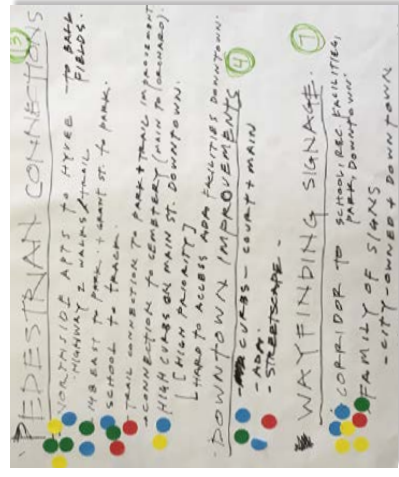 13
PEDESTRIAN CONNECTIONS
NORTHSIDE APTS TO HYVEE - TO BALL FIELDS.
- HIGHWAY 2 WALKS/TRAIL
148 EAST TO PARK. + GRANT ST. TO PARK.
SCHOOL TO TRACK.
- TRAIL CONNECTION TO PARK + TRAIL IMPROVEMENT
- CONNECTION TO CEMETERY (MAIN TO ORCHARD).
HIGH CURBS ON MAIN ST. DOWNTOWN.
[HIGH PRIORITY]
HARD TO ACCESS ADA FACILITIES DOWNTOWN.
4
DOWNTOWN IMPROVEMENTS
- CURBS - COURT + MAIN
- ADA.
- STREETSCAPE.
7
WAYFINDING SIGNAGE.
CORRIDOR TO SCHOOL, REC. FACILITIES,
PARK, DOWNTOWN.
FAMILY OF SIGNS
- CITY-OWNED + DOWNTOWN